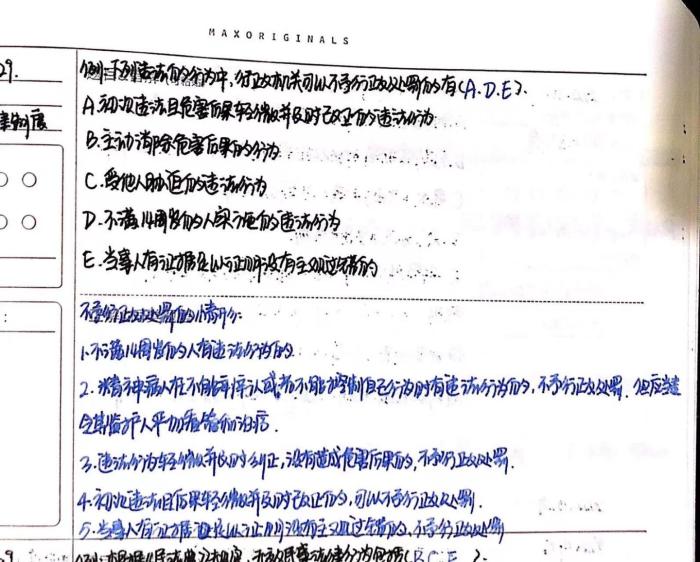 MAXORIGINALS
29.
例:下列违法的行为中,行政机关可以不予行政处罚的有(A.D.E).
A.初次违法且危害后果轻微并及时改正的违法行为
B.主动消除危害后果的行为
C.受他人胁迫的违法行为
D.不满14周岁的人实施的违法行为
E.当事人有证据足以证明没有主观过错的
不予行政处罚的情形:
1.不满14周岁的人有违法行为的.
2.精神病人在不能辨认或者不能控制自己行为时有违法行为的,不予行政处罚.但应当责
令其监护人严加看管和治疗.
3.违法行为轻微并及时纠正,没有造成危害后果的,不予行政处罚.
4.初次违法且后果轻微并及时改正的,可以不予行政处罚.
5.当事人有证据足以证明没有主观过错的,不予行政处罚
(B.C.E ).